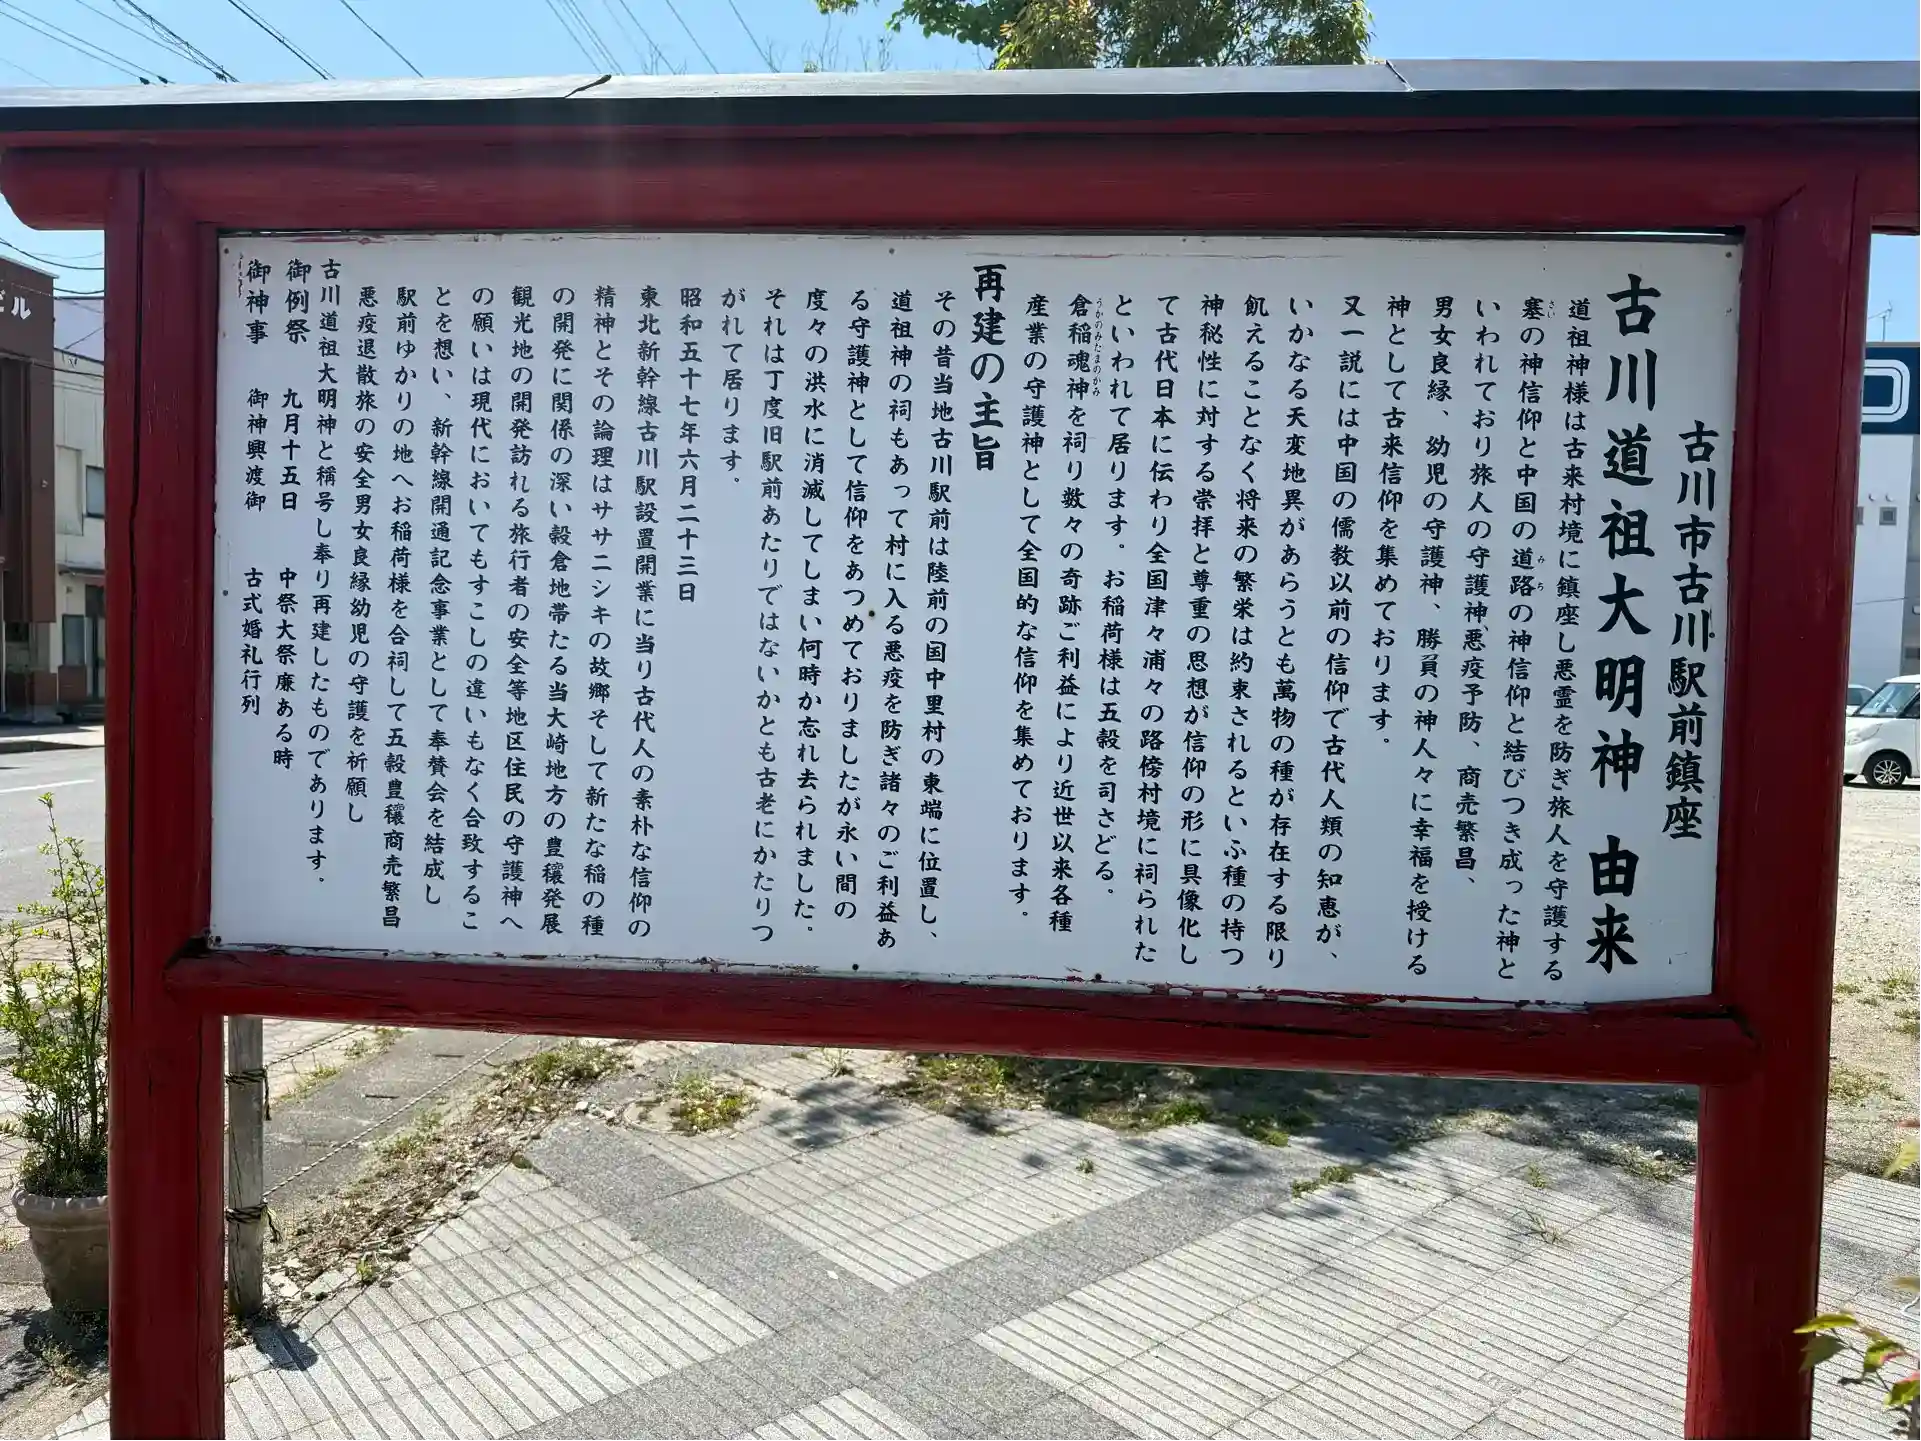 古川市古川駅前鎮座
古川道祖大明神 由来
道祖神様は古来村境に鎮座し悪霊を防ぎ旅人を守護する
塞の神信仰と中国の道路の神信仰と結びつき成った神と
さい
みち
いわれており旅人の守護神、悪疫予防、商売繁昌、
男女良縁、幼児の守護神、勝負の神人々に幸福を授ける
神として古来信仰を集めております。
又一説には中国の儒教以前の信仰で古代人類の知恵が、
いかなる天変地異があらうとも萬物の種が存在する限り
飢えることなく将来の繁栄は約束されるといふ種の持つ
神秘性に対する崇拝と尊重の思想が信仰の形に具像化し
て古代日本に伝わり全国津々浦々の路傍村境に祠られた
といわれて居ります。お稲荷様は五穀を司さどる。
倉稲魂神を祠り数々の奇跡ご利益により近世以来各種
うかのみたまのかみ
産業の守護神として全国的な信仰を集めております。
再建の主旨
その昔当地古川駅前は陸前の国中里村の東端に位置し、
道祖神の祠もあって村に入る悪疫を防ぎ諸々のご利益あ
る守護神として信仰をあつめておりましたが永い間の
度々の洪水に消滅してしまい何時か忘れ去られました。
それは丁度旧駅前あたりではないかとも古老にかたりつ
がれて居ります。
昭和五十七年六月二十三日
東北新幹線古川駅設置開業に当り古代人の素朴な信仰の
精神とその論理はササニシキの故郷そして新たな稲の種
の開発に関係の深い穀倉地帯たる当大崎地方の豊穰発展
観光地の開発訪れる旅行者の安全等地区住民の守護神へ
の願いは現代においてもすこしの違いもなく合致するこ
とを想い、新幹線開通記念事業として奉賛会を結成し
駅前ゆかりの地へお稲荷様を合祠して五穀豊穰商売繁昌
悪疫退散旅の安全男女良縁幼児の守護を祈願し
古川道祖大明神と稱号し奉り再建したものであります。
御例祭 九月十五日 中祭大祭廉ある時
御神事 御神興渡御 古式婚礼行列
ビル